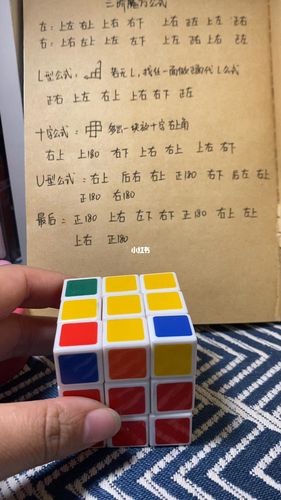 三阶魔方公式
左：上左 右上 上右 右下 上右 正左 上左 正右
右：上右 左上 上左 左下 上左 正右 上右 正左
L型公式： 若无L，找任一面做正面代L公式
正右 上左 右上 上右 右下 正左
十字公式： 多出一块放十字右上角
右上 上180 右下 上右 右上 上右 右下
U型公式：右上 后右 右上 正180 右下 后左 右上
正180 右180
最后：正180 上右 左下 右下 正180 右上 左上
上右 正180
小红书